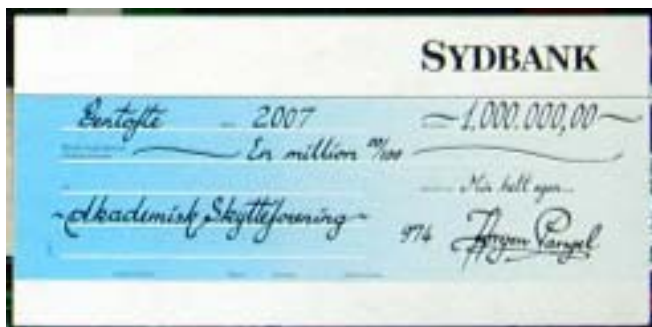 SYDBANK
Gentofte 2007 ~ 1.000.000,00 ~
En million 00/100
Min helt egen...
~ Akademisk Skytteforening ~
974 Jørgen Pangel